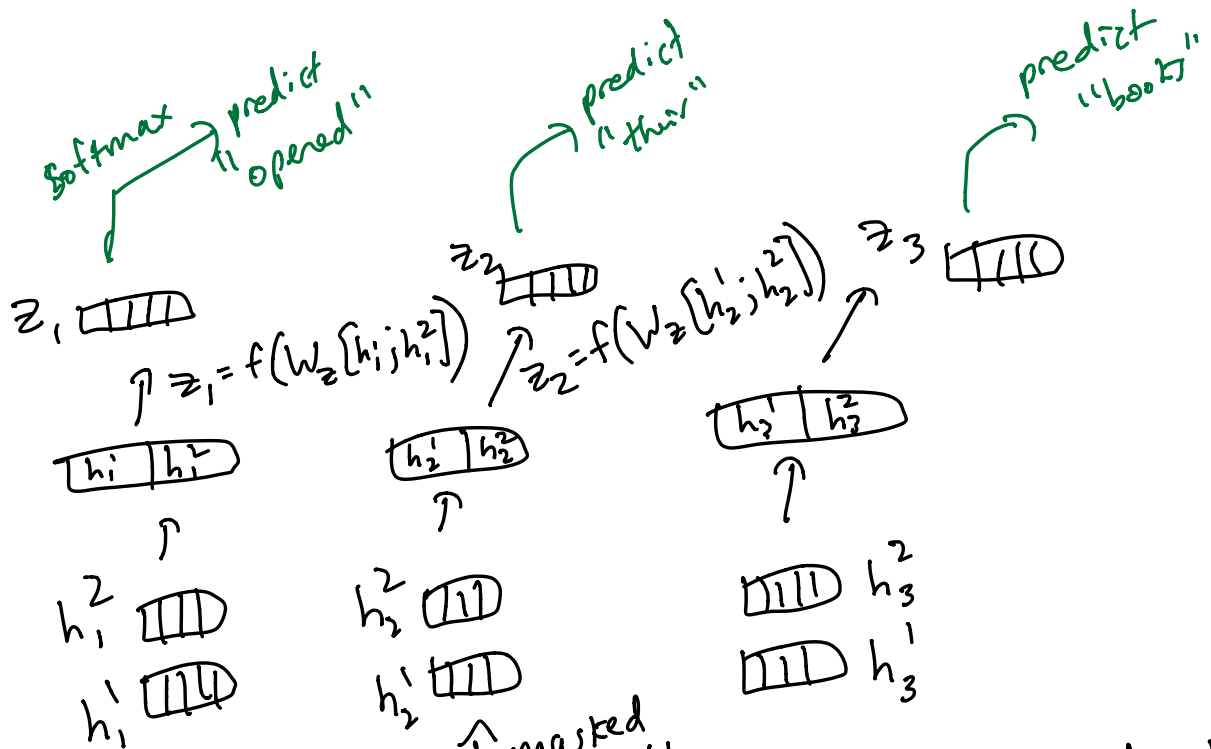 softmax
predict
"opened"
predict
"their"
predict
z₁
z₂
z₃
z₁ = f(W_z [h₁¹; h₁²])
z₂ = f(W_z [h₂¹; h₂²])
h₁¹ h₁²
h₂¹ h₂²
h₃¹ h₃²
h₁²
h₂²
h₃²
h₁¹
h₂¹
h₃¹
masked